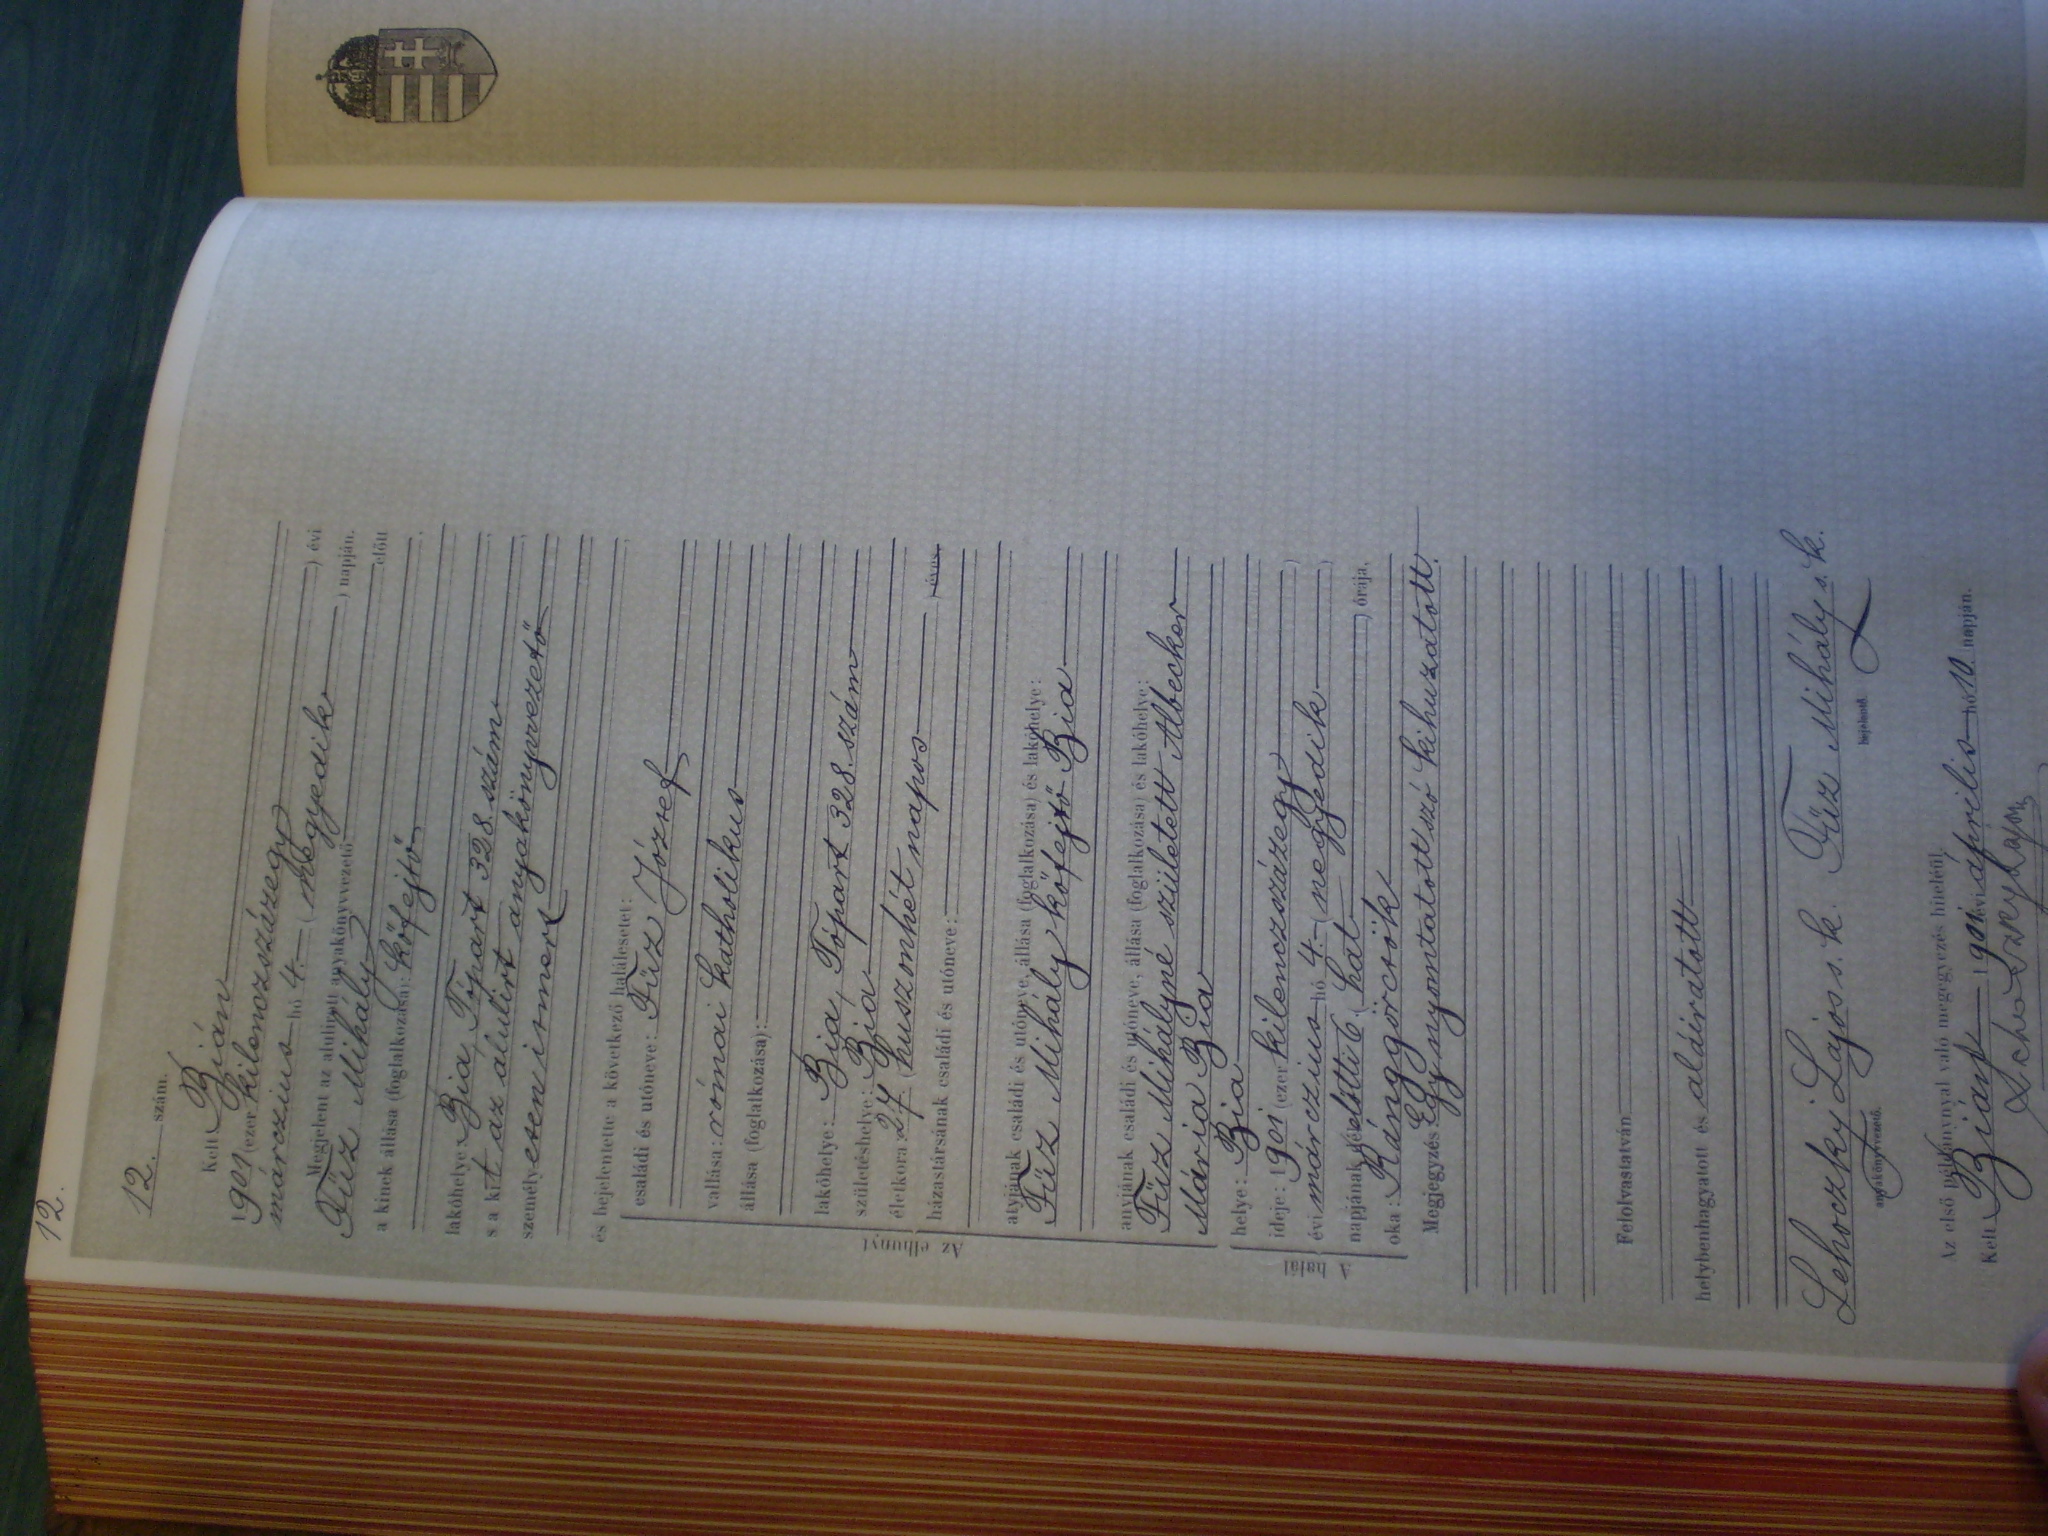 12.
12. szám.
Kelt Bián
1901 (ezer kilenczszázegy
márczius hó 4. (negyedik) évi
) napján.
Megjelent az alulirott anyakönyvvezető előtt
Füz Mihály
a kinek állása (foglalkozása): kőfejtő,
lakóhelye: Bia, Tópart 328. szám
s a kit az alulirt anyakönyvvezető
személyesen ismert
és bejelentette a következő halálesetet:
Az elhunyt
családi és utóneve: Füz József
vallása: római katholikus
állása (foglalkozása):
lakóhelye: Bia, Tópart 328. szám
születéshelye: Bia
életkora: 27 (huszonhét napos ) éves
házastársának családi és utóneve:
atyjának családi és utóneve, állása (foglalkozása) és lakóhelye:
Füz Mihály kőfejtő Bia
anyjának családi és utóneve, állása (foglalkozása) és lakóhelye:
Füz Mihályné született Albecker
Mária Bia
A halál
helye: Bia
ideje: 1901 (ezer kilenczszázegy )
évi márczius hó 4. (negyedik )
napjának délelőtti 6 (hat ) órája,
oka: Rángörcsök
Megjegyzés: Egy nyomtatott szó kihuzatott.
Felolvastatván
helybenhagyatott és aláiratott
Lehoczky Lajos s. k. Füz Mihály s. k.
anyakönyvvezető. bejelentő.
Az első példánnyal való megegyezés hiteléül.
Kelt Bián 1901 évi április hó 10. napján.
Lehoczky Lajos